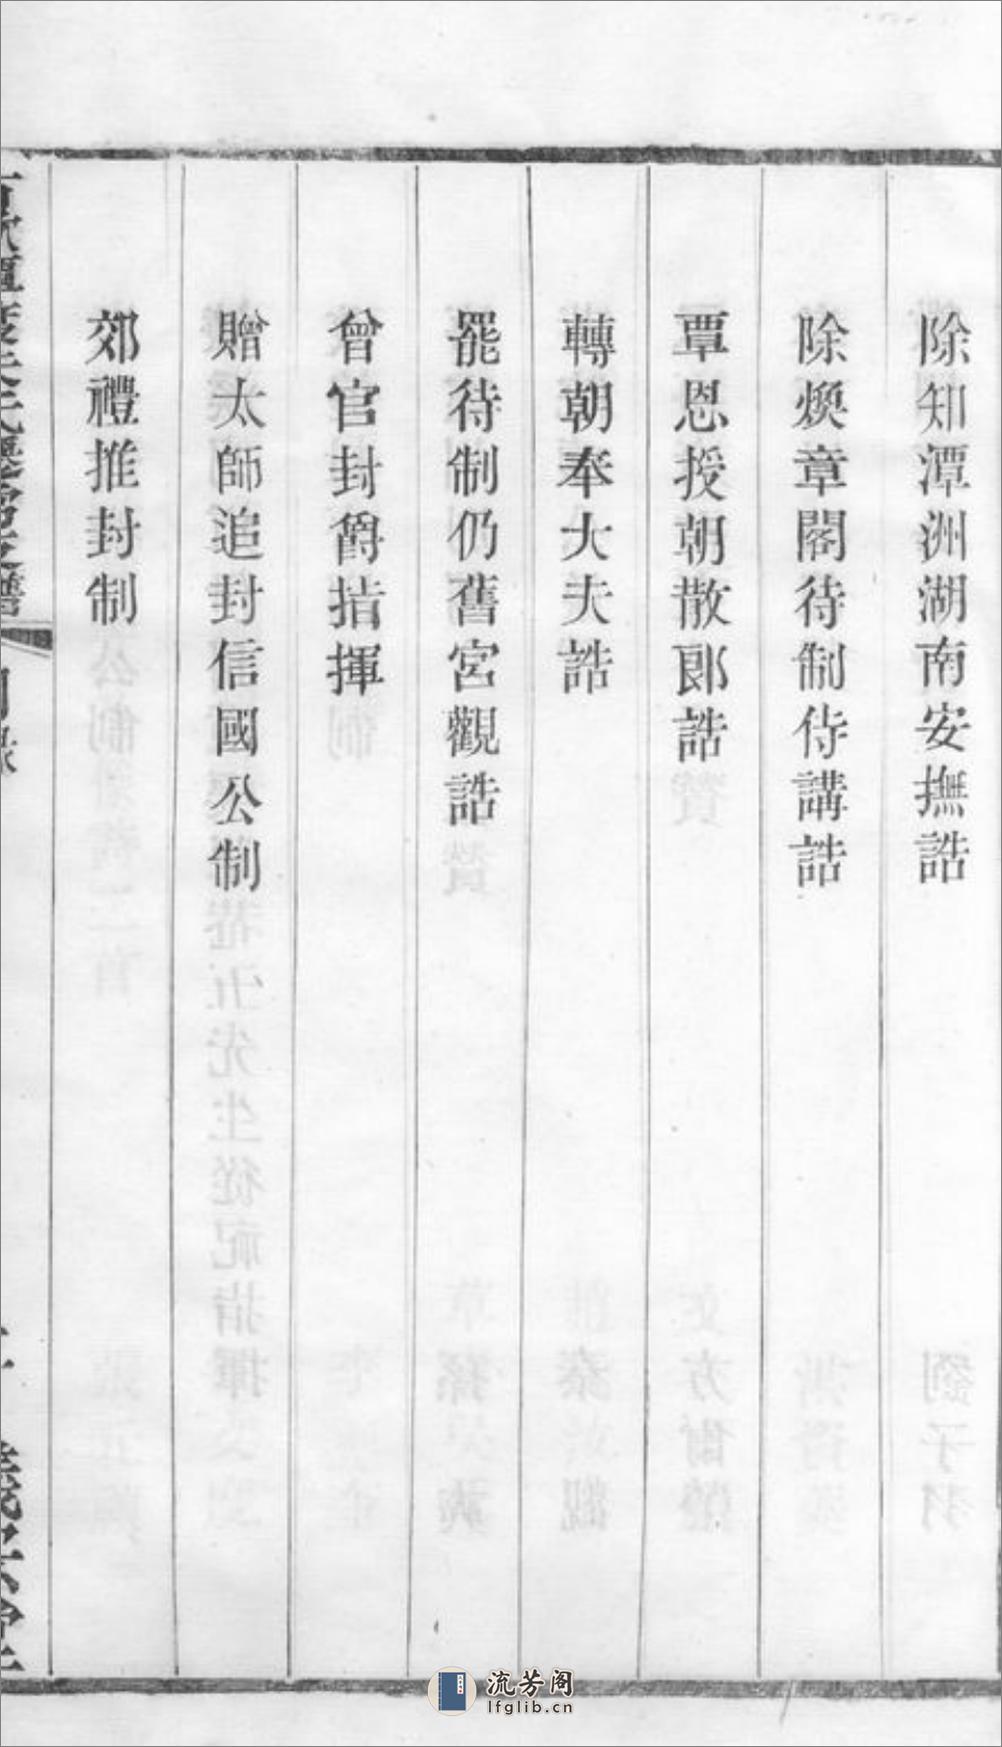 除知潭洲湖南安撫誥
除煥章閣待制侍講誥
覃恩授朝散郎誥
轉朝奉大夫誥
罷待制仍舊宮觀誥
曾官封爵指揮
贈太師追封信國公制
郊禮推封制
流芳阁
lfglib.cn